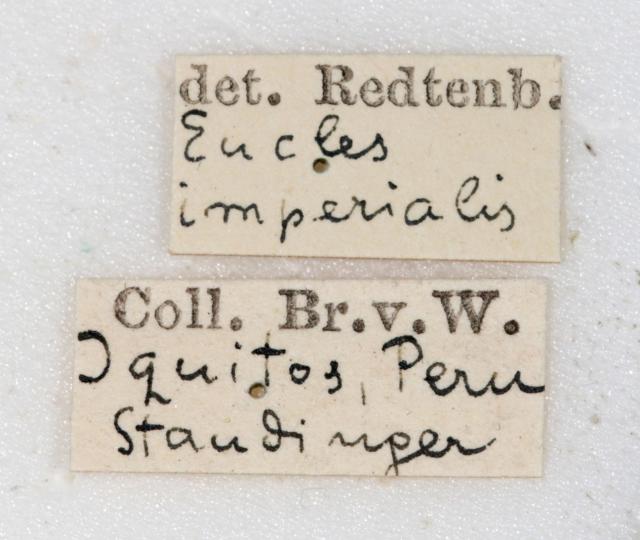 det. Redtenb.
Eucles
imperialis
Coll. Br.v.W.
Iquitos, Peru
Staudinger